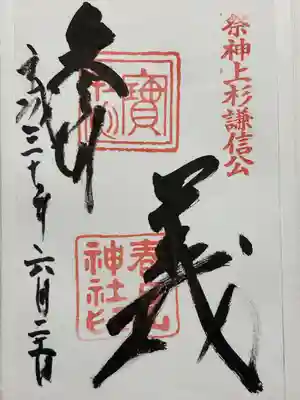 祭神上杉謙信公
義
春日山神社印
奉拝
平成三十年六月二十日